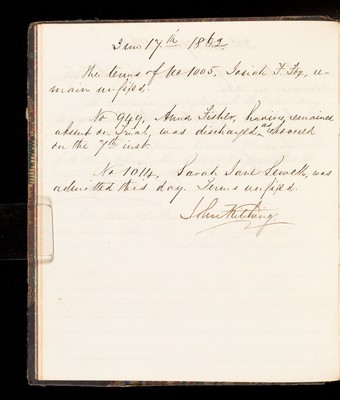 3mo 17th 1862
The terms of No 1005, Josiah F. Fox, re-
main unfixed.
No 949, Anna Fisher, having remained
absent on trial, was discharged, as restored
on the 7th inst.
No 1014, Sarah Jane Sewell, was
admitted this day. Terms unfixed.
John